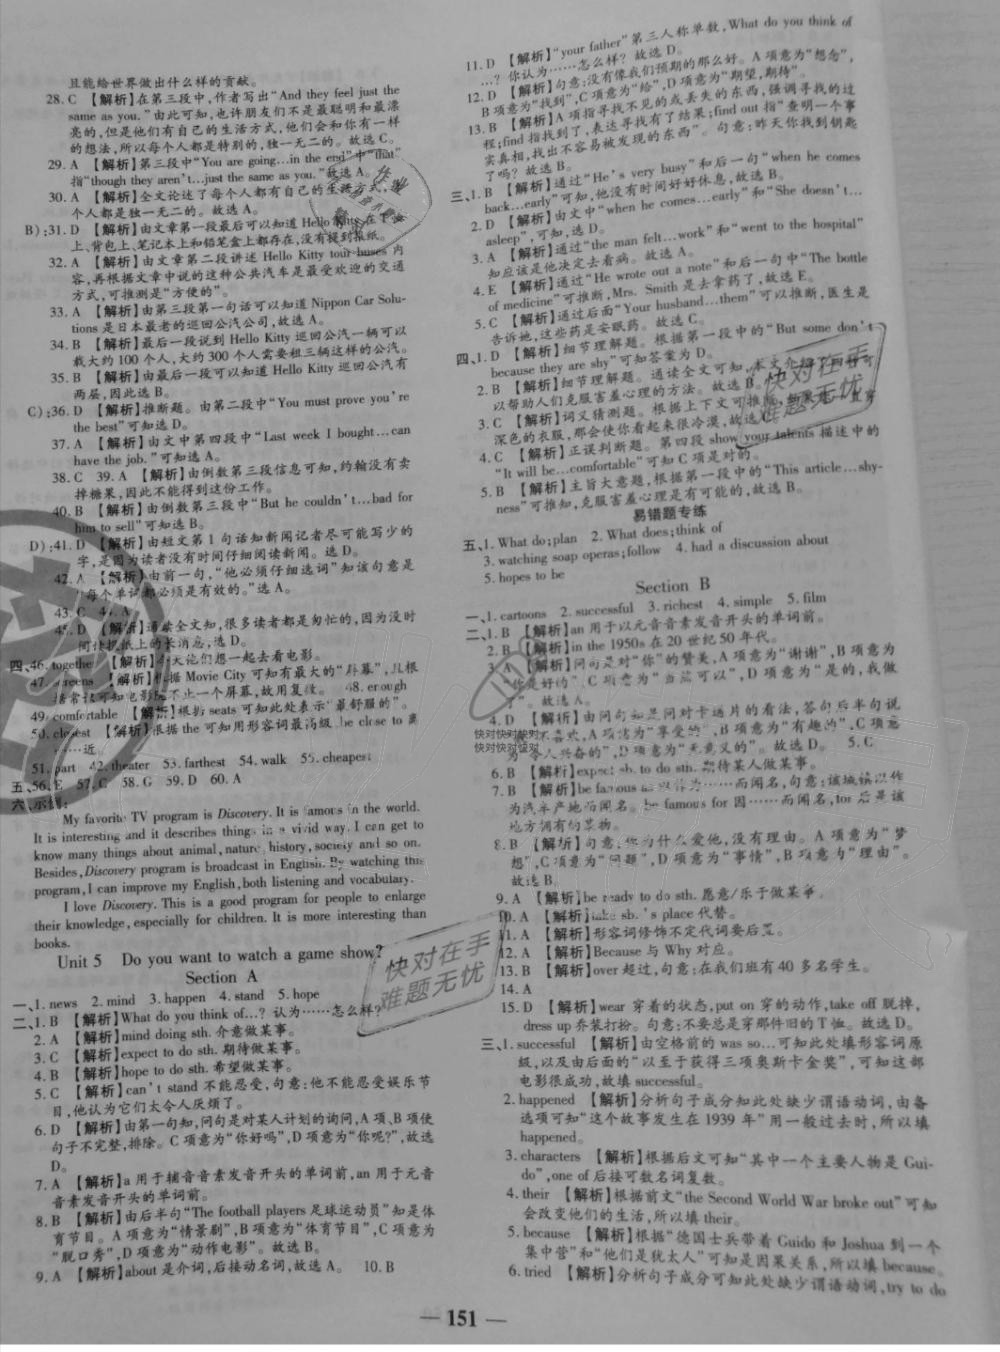 且能给世界做出什么样的贡献。
28. C 【解析】在第三段中,作者写出“And they feel just the
same as you.”由此可知,也许朋友们不是最聪明和最漂
亮的,但是他们有自己的生活方式,他们会和你有一样
的想法,所以每个人都是特别的,独一无二的。故选C。
29. A 【解析】第三段中“You are going…in the end”中“that”
指“though they aren’t…just the same as you.”故选A。
30. A 【解析】全文论述了每个人都有自己的生活方式,每
个人都是独一无二的。故选A。
B):31. D 【解析】由文章第一段最后可以知道Hello Kitty在T恤
上、背包上、笔记本上和铅笔盒上都存在,没有提到报纸。
32. A 【解析】由文章第二段讲述Hello Kitty tour buses内
容,再根据文章中说的这种公共汽车是最受欢迎的交通
方式,可推测是“方便的”。
33. A 【解析】由第三段第一句话可以知道Nippon Car Solu-
tions是日本最老的巡回公汽公司,故选A。
34. B 【解析】最后一段说到Hello Kitty巡回公汽一辆可以
载大约100个人,大约300个人需要租三辆这样的公汽。
35. B 【解析】由最后一段可以知道Hello Kitty巡回公汽有
两层,因此选B。
C):36. D 【解析】推断题。由第二段中“You must prove you’re
the best”可知选D。
37. A 【解析】由文中第四段中“Last week I bought…can
have the job.”可知选A。
38. C 39. A 【解析】由倒数第三段信息可知,约翰没有卖
掉糖果,因此不能得到这份工作。
40. B 【解析】由倒数第三段中“But he couldn’t…bad for
him to sell”可知选B。
D):41. D 【解析】由短文第1句话知新闻记者尽可能写少的
字,是因为读者没有时间仔细阅读新闻。选D。
42. A 【解析】由前一句,“他必须仔细选词”知该句意是
“每个单词都必须是有效的。”选A。
43. C 44. A
45. D 【解析】通读全文知,很多读者都是匆忙的,他们没时
间读报纸上的长消息,选D。
四、46. together 【解析】今天他们想一起去看电影。
47. screens 【解析】根据Movie City可知有许多“屏幕”,且根
据常识可知电影院不止一个屏幕,故用复数。 48. enough
49. comfortable 【解析】根据seats可知此处表示“最舒服的”。
50. closest 【解析】根据the可知用形容词最高级,be close to离
……近。
51. part 52. theater 53. farthest 54. walk 55. cheapest
五、56. E 57. C 58. G 59. D 60. A
六、示例:
My favorite TV program is Discovery. It is famous in the world.
It is interesting and it describes things in a vivid way. I can get to
know many things about animal, nature, history, society and so on.
Besides, Discovery program is broadcast in English. By watching this
program, I can improve my English, both listening and vocabulary.
I love Discovery. This is a good program for people to enlarge
their knowledge, especially for children. It is more interesting than
books.
Unit 5 Do you want to watch a game show?
Section A
一、1. news 2. mind 3. happen 4. stand 5. hope
二、1. B 【解析】What do you think of…? 认为……怎么样?
2. A 【解析】mind doing sth. 介意做某事。
3. C 【解析】expect to do sth. 期待做某事。
4. B 【解析】hope to do sth. 希望做某事。
5. C 【解析】can’t stand不能忍受,句意:他不能忍受娱乐节
目,他认为它们太令人厌烦了。
6. D 【解析】由第一句知,问句是对某人计划的询问,A项、B项使
句子不完整,排除。C项意为“你好吗”,D项意为“你呢?”,故选
D。
7. A 【解析】a用于辅音音素发音开头的单词前,an用于元音
音素发音开头的单词前。
8. B 【解析】由后半句“The football players足球运动员”知是体
育节目。A项意为“情景剧”,B项意为“体育节目”,C项意为
“脱口秀”,D项意为“动作电影”。故选B。
9. A 【解析】about是介词,后接动名词,故选A。 10. B
11. D 【解析】“your father”第三人称单数,What do you think of
…? 你认为……怎么样? 故选D。
12. D 【解析】句意:没有像我们预期的那么好。A项意为“想念”,
B项意为“找到”,C项意为“给”,D项意为“期望,期待”。
13. B 【解析】A项指寻找不见的或丢失的东西,强调寻找的过
程;find指找到了,表达寻找有了结果;find out指“查明一个事
实真相,找出不容易被发现的东西”。句意:昨天你找到钥匙
了吗? 故选B。
三、1. B 【解析】通过“He’s very busy”和后一句“when he comes
back…early”可知,他没有时间好好休息,故选B。
2. D 【解析】由文中“when he comes…early”和“She doesn’t…
asleep”,可知,选D。
3. A 【解析】通过“the man felt…work”和“went to the hospital”
知应该是他决定去看病。故选A。
4. E 【解析】通过“He wrote out a note”和后一句中“The bottle
of medicine”可推断,Mrs. Smith是去拿药了,故选E。
5. C 【解析】通过后面“Your husband…them”可以推断,医生是
告诉她,这些药是安眠药。故选C。
四、1. D 【解析】细节理解题。根据第一段中的“But some don’t
because they are shy”可知答案为D。
2. B 【解析】细节理解题。通读全文可知,本文介绍了四种可
以帮助人们克服害羞心理的方法。故选B。
3. C 【解析】词义猜测题。根据上下文可推知,如果你一直穿
深色的衣服,那会使你看起来很冷漠,故选C。
4. C 【解析】正误判断题。第四段show your talents描述中的
“It will be…comfortable”可知C项是对的。
5. B 【解析】主旨大意题,根据第一段中的“This article…shy-
ness”可推知,克服害羞心理是有可能的,故选B。
易错题专练
五、1. What do;plan 2. What does;think of
3. watching soap operas;follow 4. had a discussion about
5. hopes to be
Section B
一、1. cartoons 2. successful 3. richest 4. simple 5. film
二、1. B 【解析】an用于以元音音素发音开头的单词前。
2. B 【解析】in the 1950s在20世纪50年代。
3. 【解析】问句是对“你”的赞美,A项意为“谢谢”,B项意为
“你是好的”,C项意为“当然可以”,D项意为“是的,我做
了”。故选A。
4. D 【解析】由问句知是问对卡通片的看法,答句后半句说
我不喜欢,A项意为“享受的”,B项意为“有趣的”,C项意
为“令人兴奋的”,D项意为“无意义的”。故选D。 5. C
6. B 【解析】expect sb. to do sth. 期望某人做某事。
7. B 【解析】be famous as以……而闻名,句意:该城镇以作
为汽车产地而闻名。be famous for因……而闻名,后常接该
地方拥有的某物。
8. B 【解析】句意:你为什么爱他,没有理由。A项意为“梦
想”,C项意为“问题”,D项意为“事情”,B项意为“理由”。
故选B。
9. A 【解析】be ready to do sth. 愿意/乐于做某事。
10. A 【解析】take sb.’s place代替。
11. A 【解析】形容词修饰不定代词要后置。
12. A 【解析】Because与Why对应。
13. B 【解析】over超过,句意:在我们班有40多名学生。
14. A
15. D 【解析】wear穿着的状态,put on穿的动作,take off脱掉,
dress up乔装打扮。句意:不要总是穿那件旧的T恤。故选D。
三、1. successful 【解析】由空格前的was so…可知此处填形容词原
级,以及由后面的“以至于获得三项奥斯卡金奖”,可知这部
电影很成功,故填successful。
2. happened 【解析】分析句子成分知此处缺少谓语动词,由备
选项可知“这个故事发生在1939年”用一般过去时,所以填
happened。
3. characters 【解析】根据后文可知“其中一个主要人物是Gui-
do”,one of后接可数名词复数。
4. their 【解析】根据前文“the Second World War broke out”可知
会改变他们的生活,所以填their。
5. because 【解析】根据“德国士兵带着Guido和Joshua到一个
集中营”和“他们是犹太人”可知是因果关系,所以填because。
6. tried 【解析】分析句子成分可知此处缺少谓语动词,try to do
— 151 —
快对在手
难题无忧
快对在手
难题无忧
快对快对快对
快对快对快对